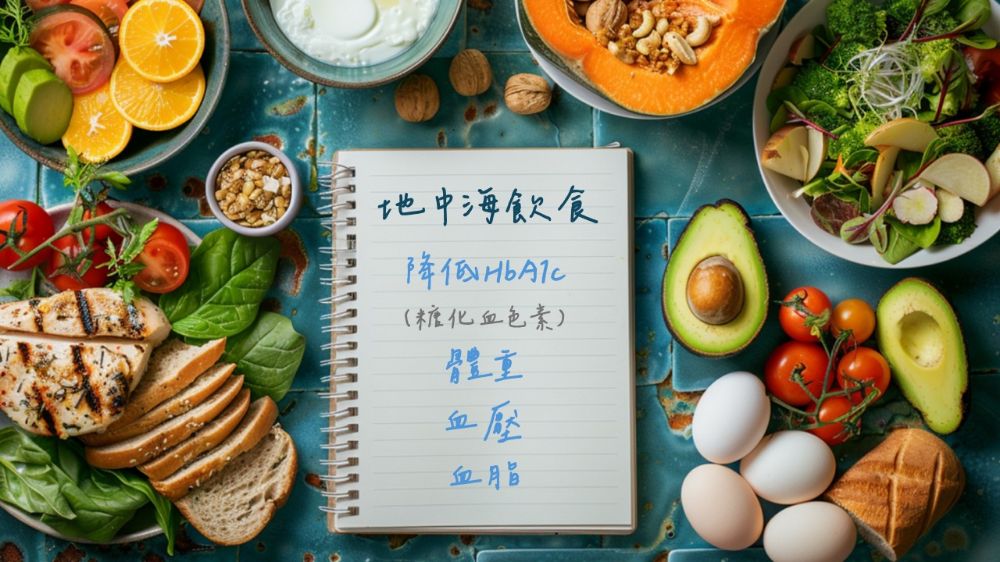 地中海飲食
降低HbA1c
(糖化血色素)
體重
血壓
血脂